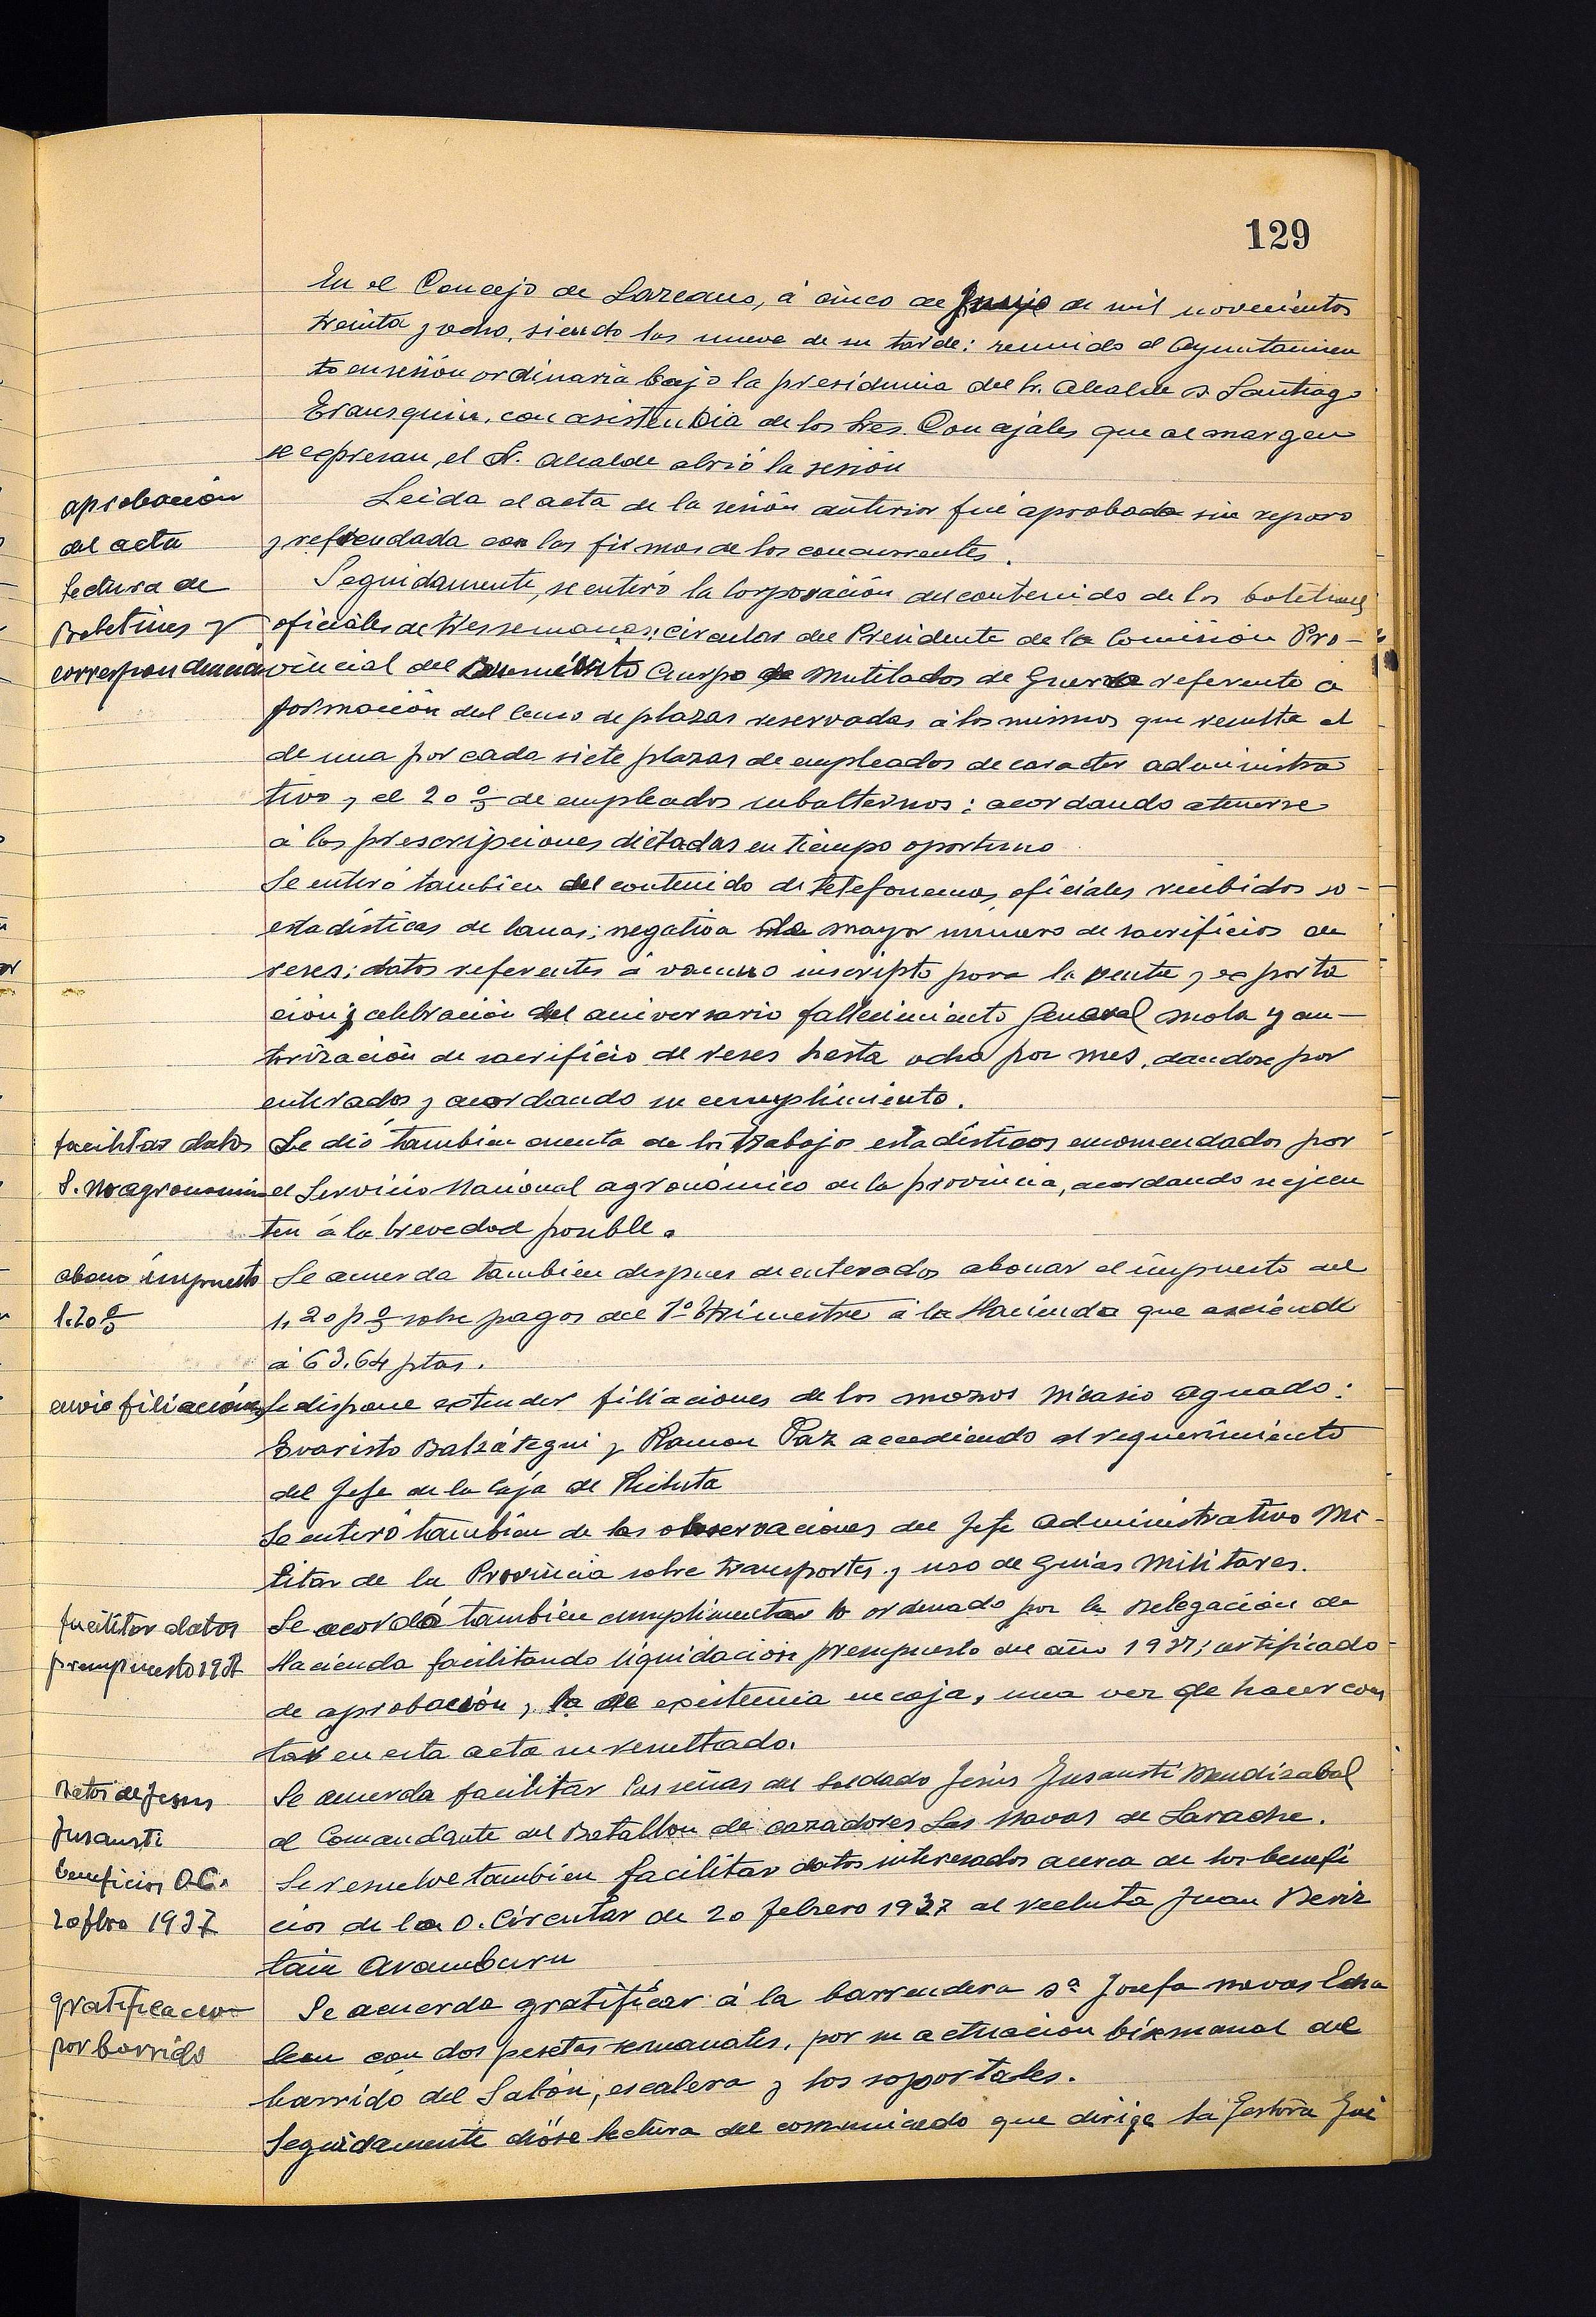 129
En el Concejo de Lazcano, á cinco de Junio de mil novecientos
treinta y ocho, siendo las nueve de su tarde: reunido el Ayuntamien
to en sesión ordinaria bajo la presidencia del Sr. Alcalde D. Santiago
Eransquin, con asistencia de los Sres. Concejales que al margen
se expresan, el Sr. Alcalde abrió la sesión
aprobación
del acta
Leida el acta de la sesión anterior fué aprobada sin reparo
y refrendada con las firmas de los concurrentes.
lectura de
Boletines y
correspondencia
Seguidamente, se enteró la Corporación del contenido de los boletines
oficiales de tres semanas: circular del Presidente de la Comisión Pro-
vincial del Benemérito Cuerpo de Mutilados de Guerra referente a
formación del censo de plazas reservadas á los mismos que resulta el
de una por cada siete plazas de empleados de caracter administra
tivo y el 20 % de empleados subalternos: acordando atenerse
á las prescripciones dictadas en tiempo oportuno
Se enteró tambien del contenido de telefonemas oficiales recibidos so-
estadísticas de lanas; negativa de mayor número de sacrificios de
reses; datos referentes á vacuno inscripto para la venta y exporta
ción; celebración del aniversario fallecimiento General Mola y au-
torización de sacrificio de reses hasta ocho por mes, dandose por
enterados y acordando su cumplimiento.
facilitar datos
S. No agronomico
Se dió tambien cuenta de los trabajos estadísticos encomendados por
el Servicio Nacional agronómico de la provincia, acordando se ejecu
ten á la brevedad posible.
abono impuesto
1.20 %
Se acuerda tambien despues de enterados abonar el impuesto del
1,20 p % sobre pagos del 1º trimestre á la Hacienda que asciende
á 63,64 ptas.
envio filiaciones
Se dispone extender filiaciones de los mozos Nicasio Aguado:
Evaristo Balzátegui y Ramon Paz accediendo al requerimiento
del Jefe de la Caja de Recluta
Se enteró tambien de las observaciones del Jefe Administrativo Mi-
litar de la Provincia sobre transportes y uso de guias militares.
facilitar datos
presupuesto 1937
Se acordó tambien cumplimentar lo ordenado por la Delegación de
Hacienda facilitando liquidación presupuesto del año 1937; certificado
de aprobación y la de existencia en caja, una vez de hacer cons
tar en esta acta su resultado.
Datos de Jesus
Insausti
Se acuerda facilitar las señas del soldado Jesús Insausti Mendizabal
al Comandante del Batallon de cazadores Las Navas de Larache.
beneficios O.C.
20 fbro 1937
Se resuelve tambien facilitar datos interesados acerca de los benefi
cios de la O. Circular de 20 febrero 1937 al recluta Juan Beriz
tain Aramburu
gratificacion
por barrido
Se acuerda gratificar á la barrendera Dª Josefa Navas Echa
con dos pesetas semanales, por su actuación bisemanal del
barrido del Salón, escalera y los soportales.
Seguidamente dióse lectura del comunicado que dirige la Gestora